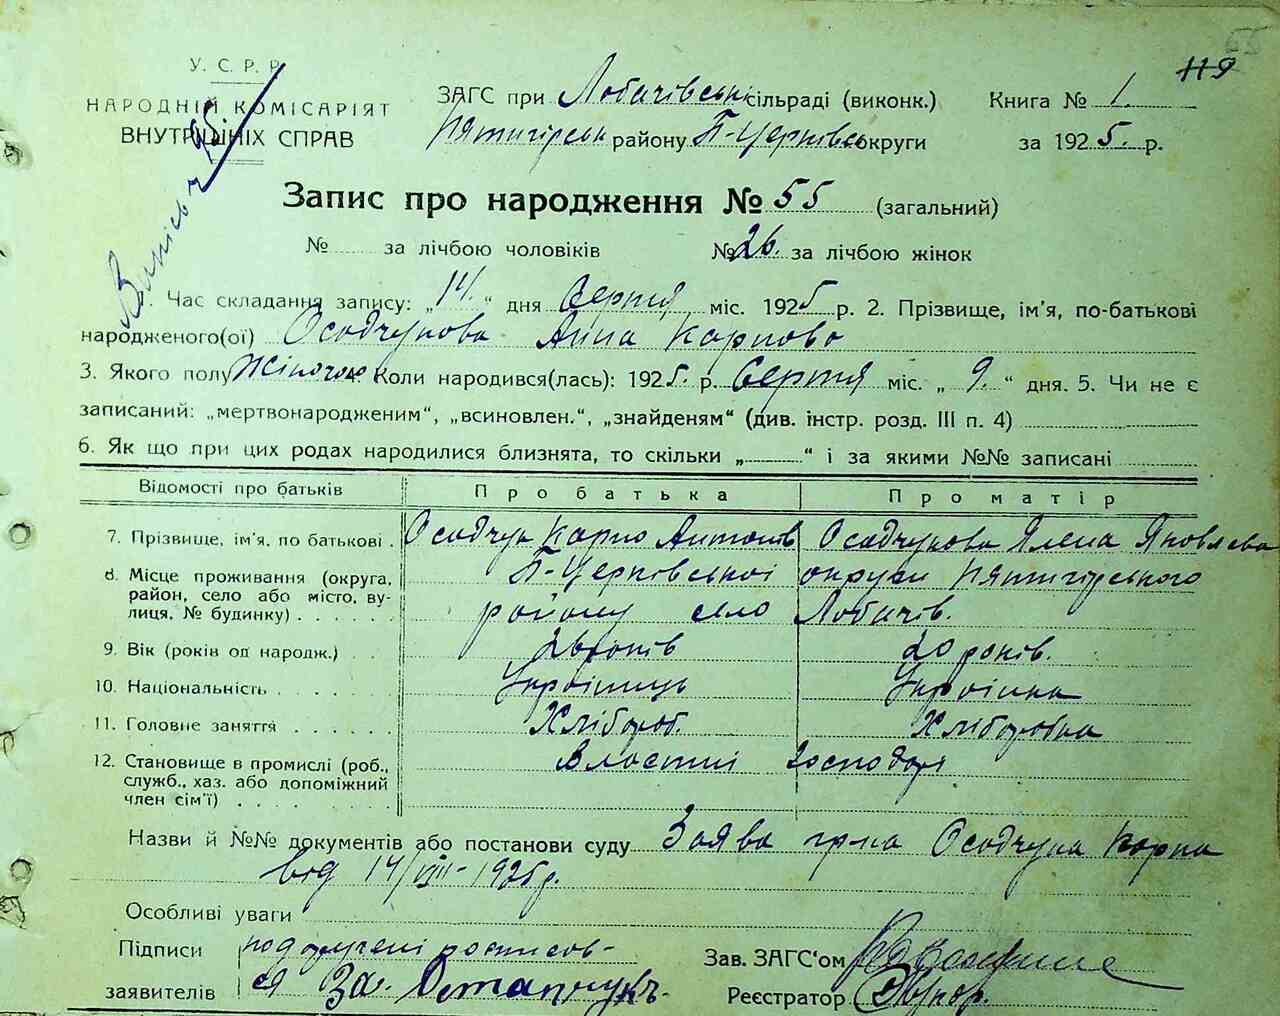 55
119
У. С. Р. Р.
НАРОДНІЙ КОМІСАРІЯТ
ВНУТРІШНІХ СПРАВ
ЗАГС при Лобачівськ сільраді (виконк.) Книга № 1.
Пятигірськ району Б-Церківсь округи за 1925. р.
Запис про народження № 55 (загальний)
№ за лічбою чоловіків № 26. за лічбою жінок
1. Час складання запису: „14.“ дня Серпня міс. 1925 р. 2. Прізвище, ім'я, по-батькові
народженого(ої) Осадчукова Анна Карпова
3. Якого полу Жіночого Коли народився(лась): 1925. р. Серпня міс. „9.“ дня. 5. Чи не є
записаний: „мертвонародженим“, „всиновлен.“, „знайденям“ (див. інстр. розд. III п. 4)
6. Як що при цих родах народилися близнята, то скільки „ “ і за якими №№ записані
Відомості про батьків Про батька Про матір
7. Прізвище, ім'я, по батькові . Осадчук Карпо Антонів Осадчукова Ялена Яковлева
8. Місце проживання (округа, Б-Церківської округи Пятигірського
район, село або місто, ву-
лиця, № будинку) . . . . . . району село Лобачів.
9. Вік (років од народж.) . . . 26 років 20 років.
10. Національність . . . . . . Українець Українка
11. Головне заняття . . . . . . Хлібороб. Хліборобка
12. Становище в промислі (роб., Власний господар
служб., хаз. або допоміжний
член сім'ї) . . . . . . . .
Назви й №№ документів або постанови суду Заява гр-на Осадчука Карпа
від 14/VIII-1925р.
Особливі уваги
Підписи по доручені росписов-
заявителів ся За. Остапчукъ.
Зав. ЗАГС'ом
Реєстратор